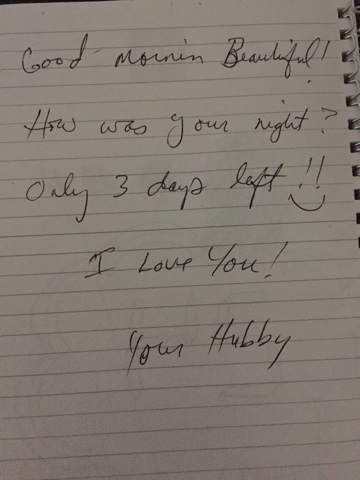 Good Mornin Beautiful!
How was your night?
Only 3 days left!!
I Love You!
Your Hubby